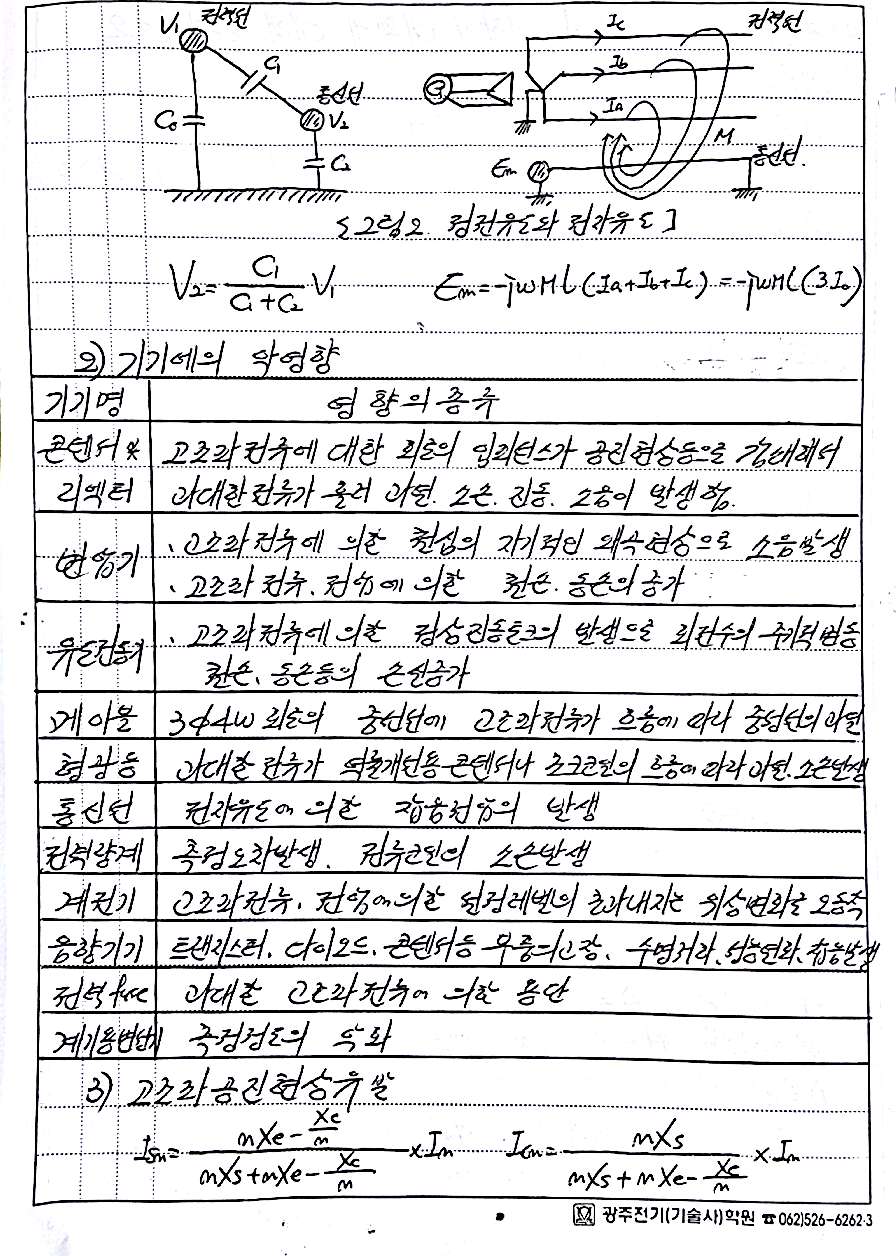 V₁ 전력선
C₁
C₀
통신선
V₂
C₂
Ic 전력선
Ib
Ia
M
Em 통신선.
[그림2. 정전유도와 전자유도]
V₂ = C₁/(C₁+C₂) V₁ Em = -jωMl(Ia+Ib+Ic) = -jωMl(3I₀)
2) 기기에의 악영향
기기명 영향의 종류
콘덴서 및 고조파전류에 대한 회로의 임피던스가 공진현상등으로 감대해서
리액터 과대한전류가 흘러 과열. 소손. 진동. 소음이 발생함.
변압기 · 고조파전류에 의한 철심의 자기적인 왜곡현상으로 소음발생
· 고조파 전류. 전압에 의한 철손. 동손의 증가
유도전동기 · 고조파전류에 의한 정상진동토크의 발생으로 회전수의 주기적변동
철손, 동손등의 손실증가
케이블 3φ4W 회로의 중성선에 고조파전류가 흐름에 따라 중성선의 과열
형광등 과대한 전류가 역률개선용 콘덴서나 쵸크코일의 흐름에 따라 과열. 소손발생
통신선 전자유도에 의한 잡음전압의 발생
전력량계 측정오차발생. 전류코일의 소손발생
계전기 고조파전류. 전압에 의한 설정레벨의 초과내지는 위상변화로 오동작
음향기기 트랜지스터. 다이오드. 콘덴서등 부품의고장. 수명저하. 성능열화. 잡음발생
전력fuse 과대한 고조파전류에 의한 용단
계기용변성기 측정정도의 악화
3) 고조파공진현상유발
Isn = (nXe - Xc/n)/(nXs + nXe - Xc/n) × In Icn = nXs/(nXs + nXe - Xc/n) × In
광주전기(기술사)학원 ☎062)526-6262·3